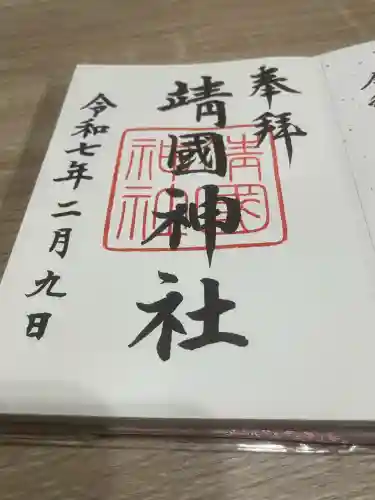 奉拝
靖國神社
令和七年二月九日
靖國
神社